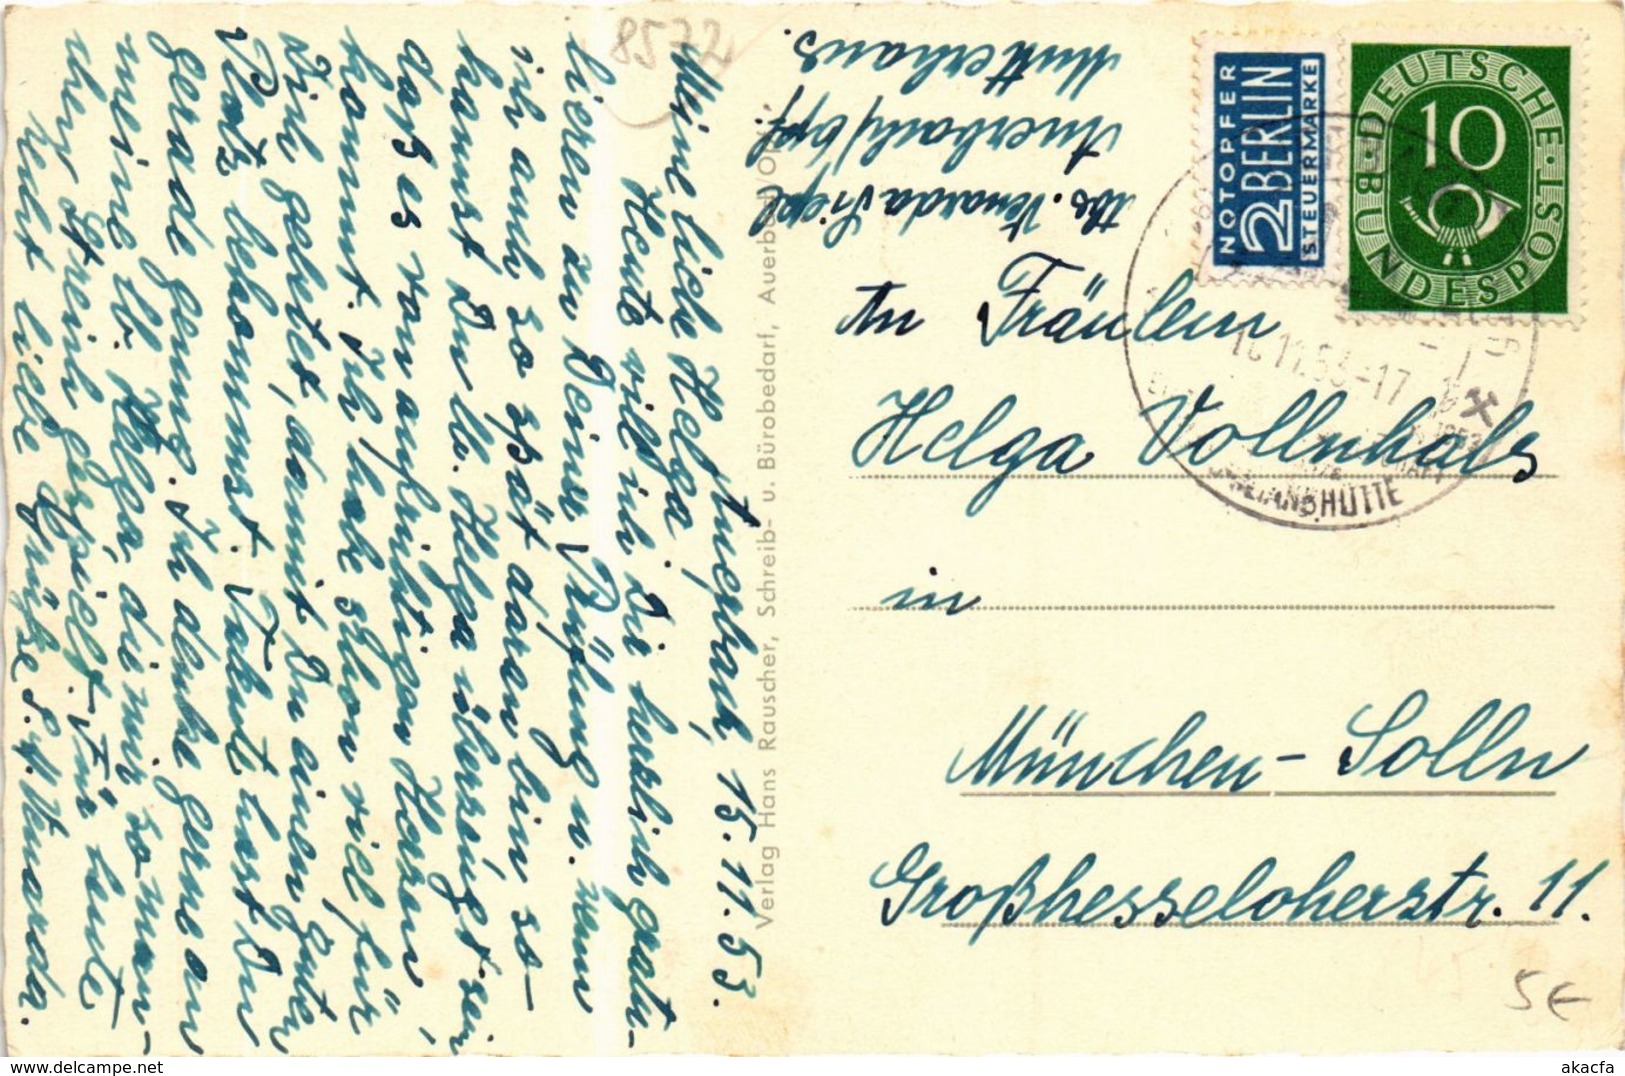 Auerbach, 15.11.53.
Meine liebe Helga
Heute will ich Dir herzlich gratu-
lieren zu Deiner Prüfung u. wenn
ich auch so spät daran bin so
kannst Du lb. Helga überzeugt sein
daß es von aufrichtigen Herzen
kommt. Ich habe schon viel für
Dich gebetet, damit Du einen guten
Platz bekommst. Vakat hast Du
gerade genug. Ich denke gerne an
meine lb. Helga, die mir so man-
chen Streich gespielt. Für heute
recht liebe Grüße S. M. Venarda.
Abs. Venarda Siegl
Auerbach/Opf
Mutterhaus.
Verlag Hans Rauscher, Schreib- u. Bürobedarf, Auerbach/Opf.
8572
NOTOPFER
2 BERLIN
STEUERMARKE
DEUTSCHE BUNDESPOST
10
11.53-17
An Fräulein
Helga Vollnhals
in
München-Solln
Großhesseloherstr. 11.
5€
akacfa